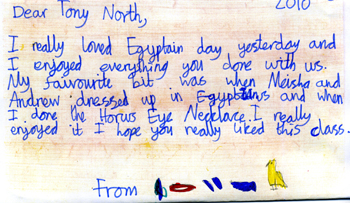 2010
Dear Tony North,
I really loved Egyptain day yesterday and
I enjoyed everything you done with us.
My favourite bit was when Meisha and
Andrew dressed up in and when
I done the Horus Eye Necklace. I really
enjoyed it I hope you really liked this class.
From